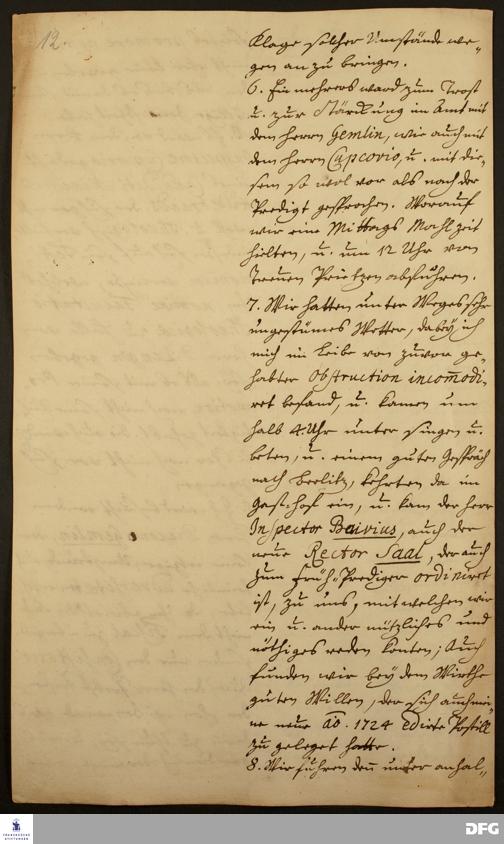 12.
Klage solcher Umstände we-
gen anzubringen.
6. Ein mehrers ward zum Trost
u. zur Stärckung im Amt mit
dem Herrn Gemlin, wie auch mit
dem Herrn Capcovio, u. mit die-
sem so wol vor als nach der
Predigt gesprochen. Worauf
wir eine Mittags Mahlzeit
hielten, u. um 12 Uhr von
Treuen Prietzen abfuhren.
7. Wir hatten unter Weges sehr
ungestümes Wetter, dabey ich
mich im Leibe von zuvor ge-
habter Obstruction incom̄odi-
ret befand, u. kamen um
halb 4. Uhr unter singen u.
beten, u. einem guten Gespräch
nach Beelitz, kehrten da im
Gast-hof ein, u. kam der Herr
Inspector Baivius, auch der
neue Rector Saal, der auch
zum Früh-Prediger ordiniret
ist, zu uns, mit welchen wir
ein u. ander nützliches und
nöthiges reden konten; Auch
funden wir bey dem Wirthe
guten Willen, der sich auch mei-
ne neue ao. 1724 edirte Postill
zu geleget hatte.
8. Wir fuhren den̄ unter anhal-
FRANCKESCHE
STIFTUNGEN
DFG